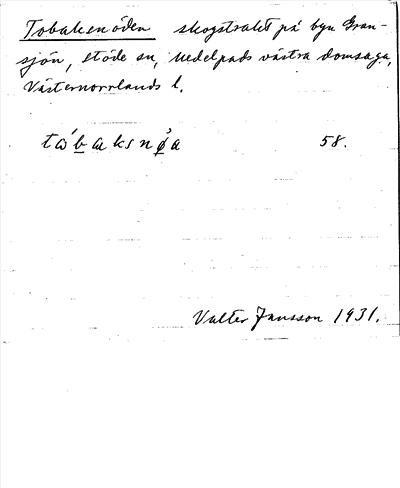 Tobaksnöden skogstrakt på byn Gran-
sjön, Stöde sn, Medelpads västra domsaga,
Västernorrlands l.
tώbaksnø̀a 58.
Valter Jansson 1931.